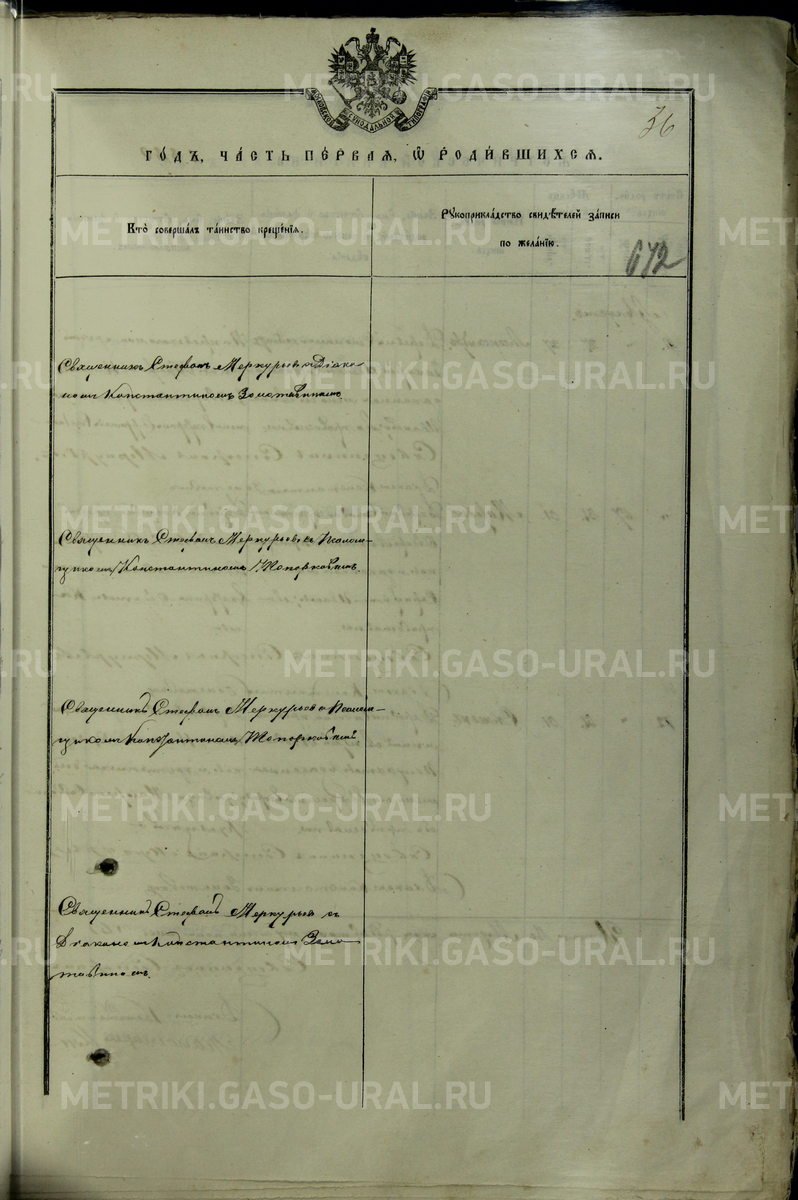 МОСКОВСКОЙ СѴНОДАЛЬНОЙ ТИПОГРАФІИ
36
ГО́ДЪ, ЧА́СТЬ ПЕ́РВАЯ, Ѽ РОДИ́ВШИХСЯ.
КТО̀ СОВЕРША́ЛЪ ТА́ИНСТВО КРЕЩЕ́НІЯ.
РУКОПРИКЛА́ДСТВО СВИДѢ́ТЕЛЕЙ ЗА́ПИСИ
ПО ЖЕЛА́НІЮ.
642
Священникъ Стефанъ Меркурьевъ с Діако-
номъ Константиномъ
Священникъ Стефанъ Меркурьевъ съ Псалом-
щикомъ Константиномъ Топорковымъ.
Священникъ Стефанъ Меркурьевъ Псалом-
щикомъ Константиномъ Топорковымъ
Священникъ Стефанъ Меркурьев съ
Діакономъ Константиномъ
METRIKI.GASO-URAL.RU